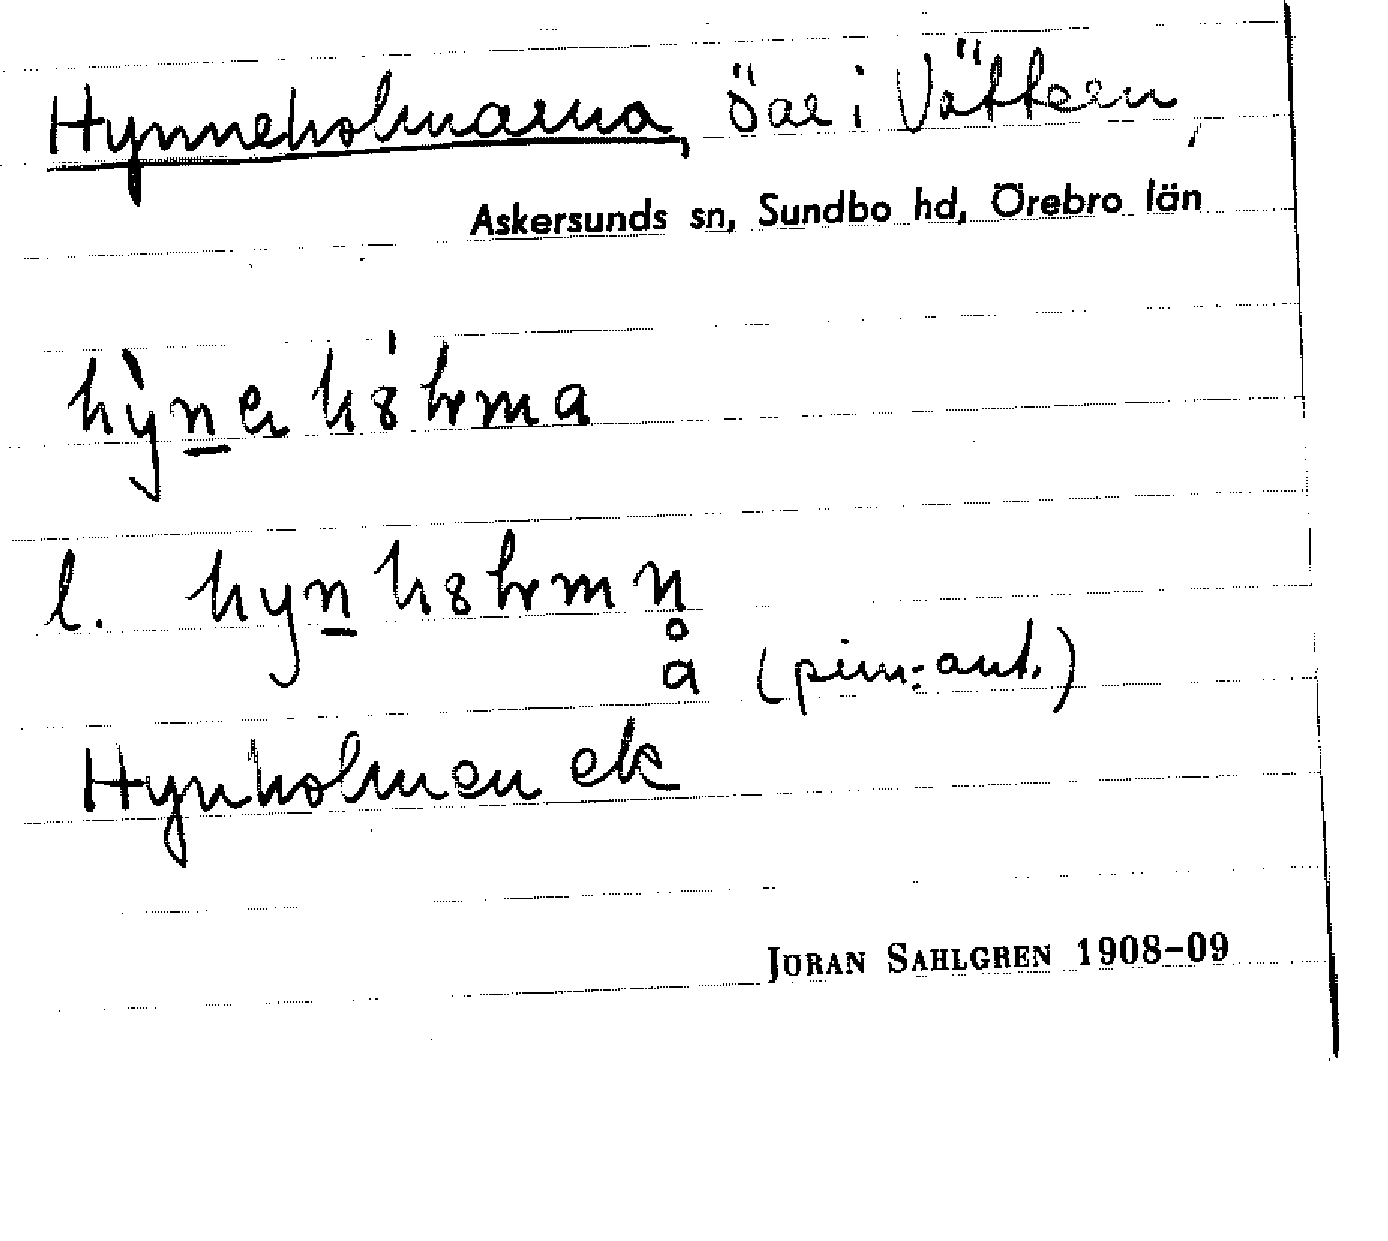 Hynneholmarna, öar i Vättern,
Askersunds sn, Sundbo hd, Örebro län
l.
å (prim.-ant.)
Hynholmen ek
JÖRAN SAHLGREN 1908-09